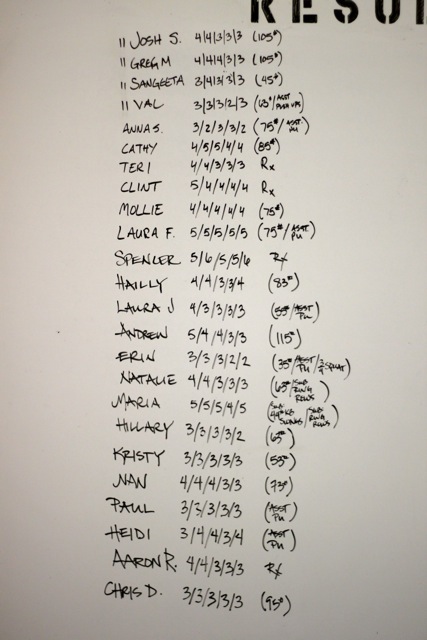 RESU
11 JOSH S. 4/4/3/3/3 (105#)
11 GREG M 4/4/4/3/3 (105#)
11 SANGEETA 3/4/3/3/3 (45#)
11 VAL 3/3/3/2/3 (63#/ASST PUSH UPS)
ANNA S. 3/2/3/3/2 (75#/ASST. PU)
CATHY 4/5/5/4/4 (85#)
TERI 4/4/3/3/3 Rx
CLINT 5/4/4/4/4 Rx
MOLLIE 4/4/4/4/4 (75#)
LAURA F. 5/5/5/5/5 (75#/ASST. PU)
SPENCER 5/6/5/5/6 Rx
HAILLY 4/4/3/3/4 (83#)
LAURA J 4/3/3/3/3 (55#/ASST PU)
ANDREW 5/4/4/3/3 (115#)
ERIN 3/3/3/2/2 (35#/ASST PU/ SQUAT)
NATALIE 4/4/3/3/3 (65#/SUB RING ROWS)
MARIA 5/5/5/4/5 (SUB 44# KB SWINGS/SUB RING ROWS)
HILLARY 3/3/3/3/2 (65#)
KRISTY 3/3/3/3/3 (53#)
NAN 4/4/4/3/3 (73#)
PAUL 3/3/3/3/3 (ASST PU)
HEIDI 3/4/4/3/4 (ASST PU)
AARON R. 4/4/3/3/3 Rx
CHRIS D. 3/3/3/3/3 (95#)